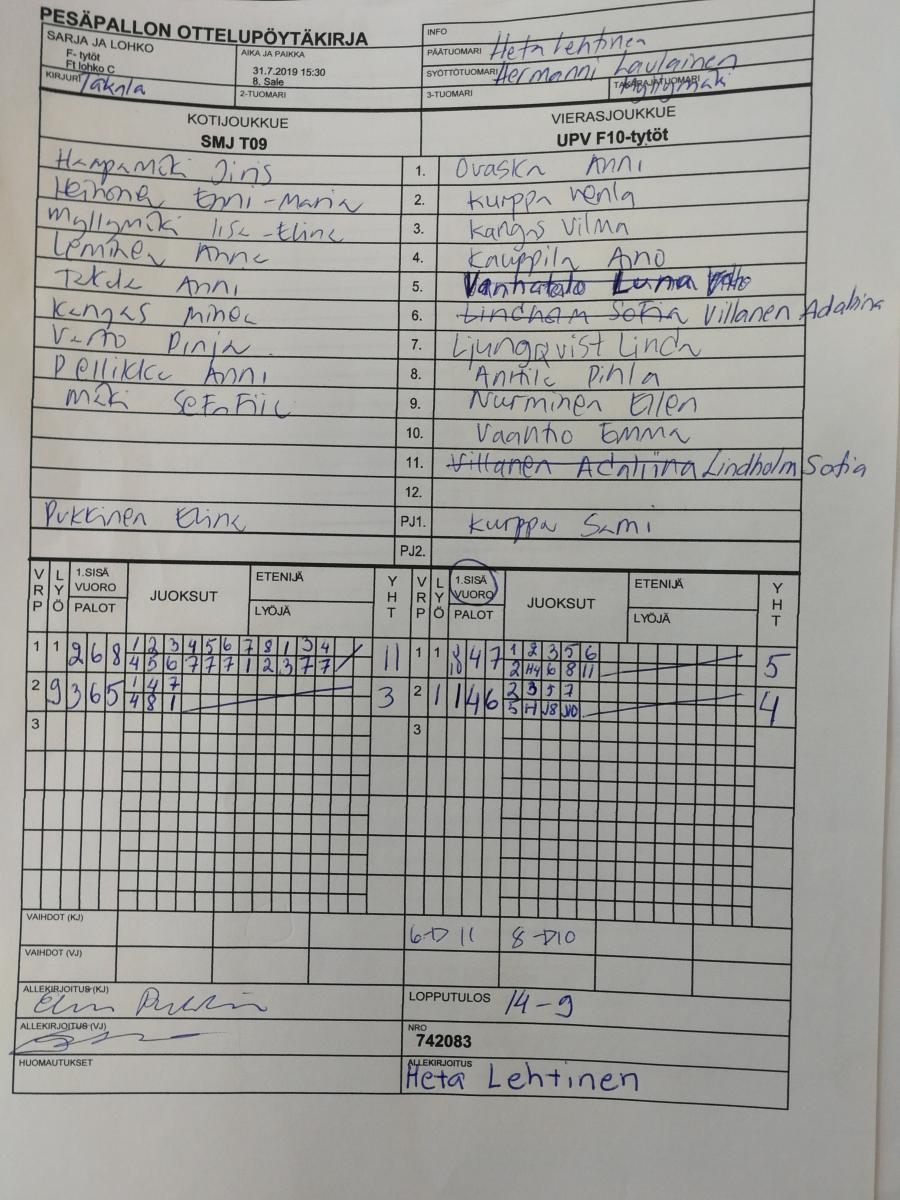 PESÄPALLON OTTELUPÖYTÄKIRJA
INFO
SARJA JA LOHKO
F- tytöt
Ft lohko C
AIKA JA PAIKKA
31.7.2019 15:30
8, Sale
PÄÄTUOMARI Heta Lehtinen
SYÖTTÖTUOMARI Hermanni Laulainen
KIRJURI
2-TUOMARI
3-TUOMARI
TAKARAJATUOMARI Myllymäki
KOTIJOUKKUE VIERASJOUKKUE
SMJ T09 UPV F10-tytöt
1. Ovaska Anni
Heinonen Emi-Maria 2. Kurppa Venla
Myllymäki Iisa-Elina 3. Kangas Vilma
Leminen Anna 4. Kauppila Aino
Anni 5. Vanhatalo Luna
Kangas Minea 6. Sofia Villanen Adaliina
Pinja 7. Ljungqvist Linda
Pellikka Anni 8. Anttila Pihla
Mäki Serafiia 9. Nurminen Ellen
10. Vaahtio Emma
11. Villanen Adaliina Lindholm Sofia
12.
Pukkinen Elina PJ1. Kurppa Sami
PJ2.
VRP LYÖ 1.SISÄ VUORO PALOT JUOKSUT ETENIJÄ LYÖJÄ YHT VRP LYÖ 1.SISÄ VUORO PALOT JUOKSUT ETENIJÄ LYÖJÄ YHT
1 1 2 6 8 1 2 3 4 5 6 7 8 1 3 4 11 1 1 4 7 1 2 3 5 6 5
4 5 6 7 7 7 1 2 3 7 7 2 H4 6 8 11
2 9 3 6 5 1 4 7 3 2 1 1 4 6 2 3 5 7 4
4 8 1 5 J8 J10
3 3
VAIHDOT (KJ) 6-D 11 8-D10
VAIHDOT (VJ)
ALLEKIRJOITUS (KJ) LOPPUTULOS 14-9
ALLEKIRJOITUS (VJ) NRO
742083
HUOMAUTUKSET ALLEKIRJOITUS
Heta Lehtinen